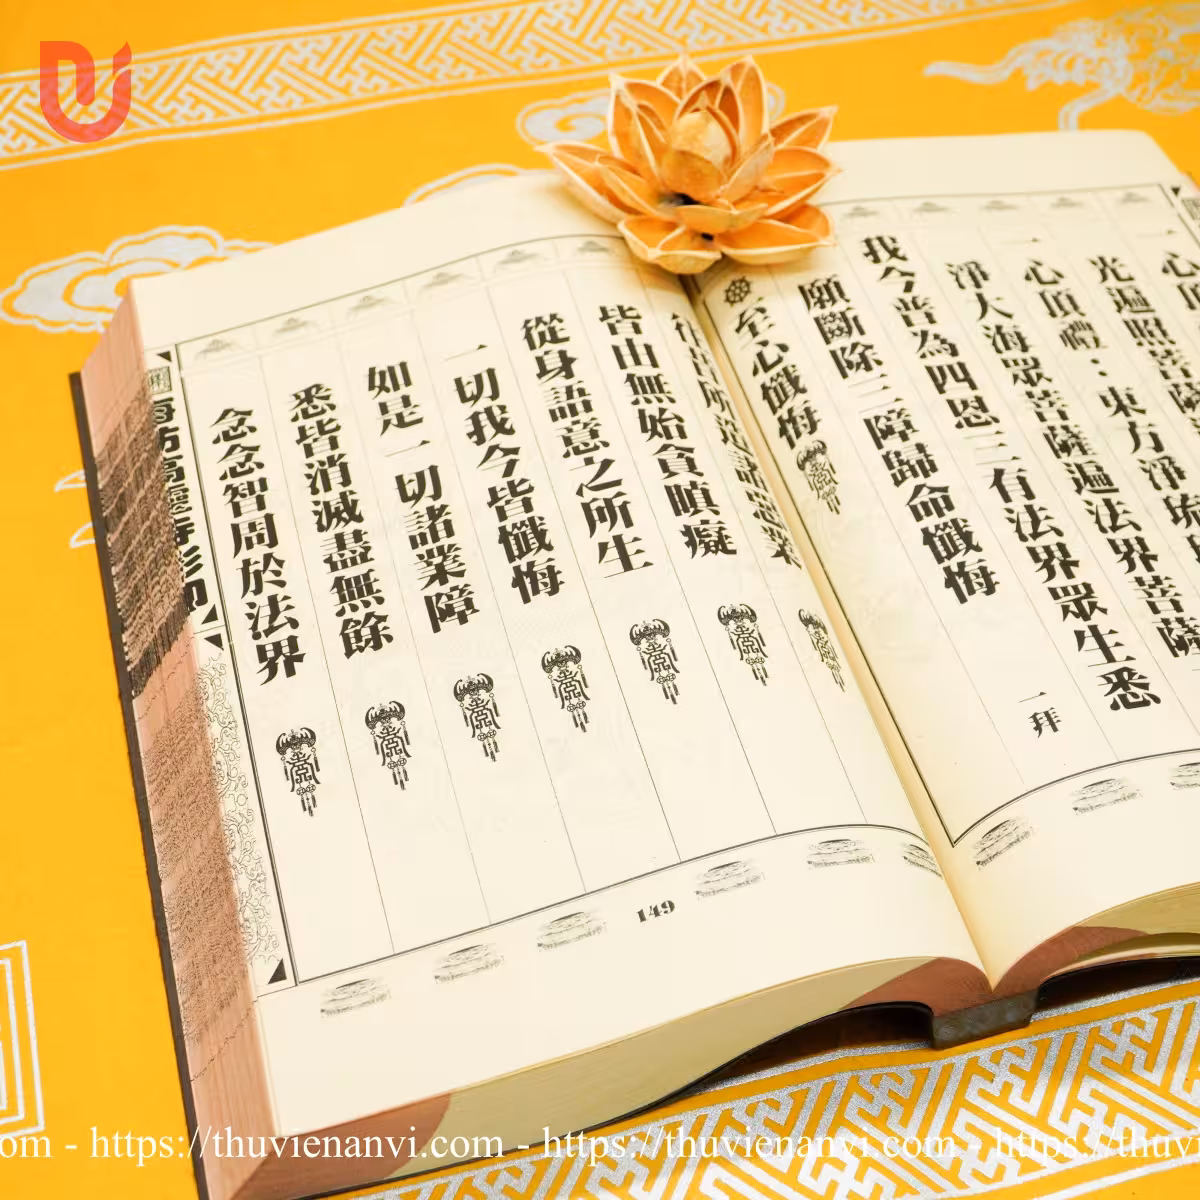 一心頂
光遍照菩薩
一心頂禮：東方淨琉
淨大海眾菩薩遍法界菩薩
我今普為四恩三有法界眾生悉
願斷除三障歸命懺悔 一拜
至心懺悔
往昔所造諸惡業
皆由無始貪瞋癡
從身語意之所生
一切我今皆懺悔
如是一切諸業障
悉皆消滅盡無餘
念念智周於法界
149
https://thuvienanvi.com - https://thuvienanvi.com - https://thuvi